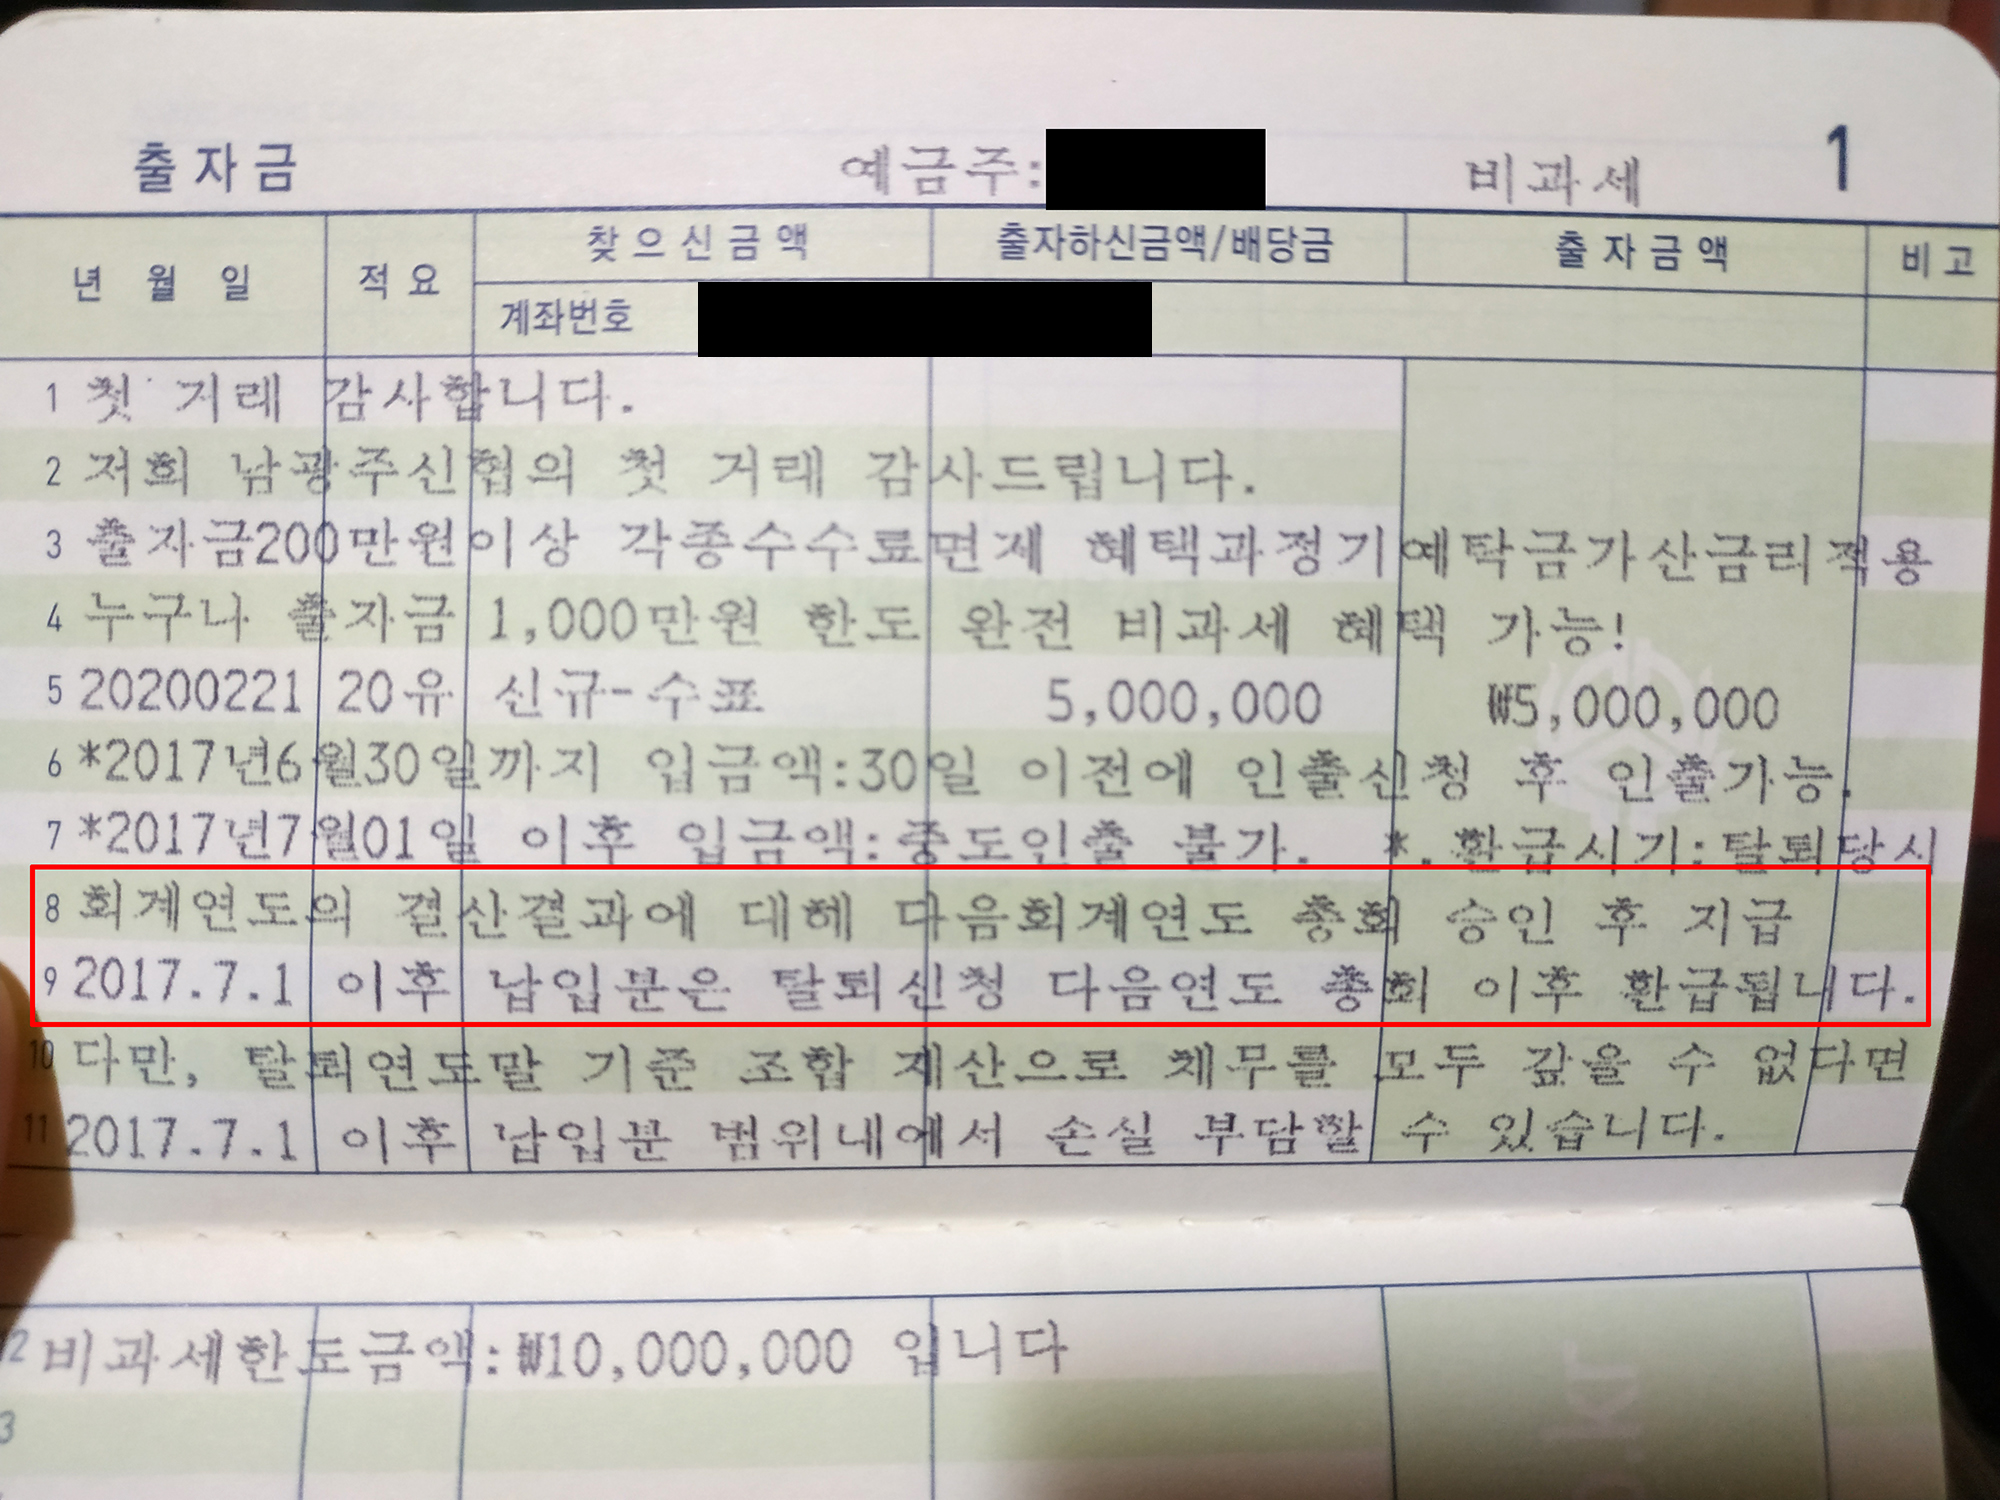 출자금 예금주: 비과세 1
년 월 일 적요 찾으신금액 출자하신금액/배당금 출자금액 비고
계좌번호
1 첫 거래 감사합니다.
2 저희 남광주신협의 첫 거래 감사드립니다.
3 출자금200만원이상 각종수수료면제 혜택과정기예탁금가산금리적용
4 누구나 출자금 1,000만원 한도 완전 비과세 혜택 가능!
5 20200221 20유 신규-수표 5,000,000 ₩5,000,000
6 *2017년6월30일까지 입금액:30일 이전에 인출신청 후 인출가능.
7 *2017년7월01일 이후 입금액:중도인출 불가. *.환급시기:탈퇴당시
8 회계연도의 결산결과에 대해 다음회계연도 총회 승인 후 지급
9 2017.7.1 이후 납입분은 탈퇴신청 다음연도 총회 이후 환급됩니다.
10 다만, 탈퇴연도말 기준 조합 재산으로 채무를 모두 갚을 수 없다면
11 2017.7.1 이후 납입분 범위내에서 손실 부담할 수 있습니다.
2 비과세한도금액:₩10,000,000 입니다
3